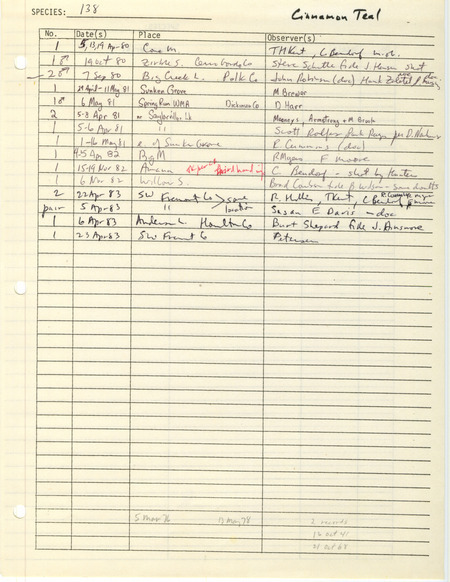 SPECIES: 138 Cinnamon Teal
No. Date(s) Place Observer(s)
1 5,13,19 Apr 80 Cone M. THKent, C Bendorf
1♂ 19 Oct 80 Cerro Gordo Co Steve Schutte fide J. Hansen shot
2♂ 7 Sep 80 Big Creek L. Polk Co John Robinson (doc) Hank Zaletel
1 29 April-11 May 81 Sunken Grove M Brewer
1♂ 6 May 81 Spring Run WMA Dickinson Co D Harr
2 5-8 Apr 81 nr Saylorville Mooneys, Armstrong + M. Brock
1 5-6 Apr 81 " Scott Rolfes Park Ranger per D.
1 1-16 May 81 e. of Sunken Grove R Cummins (doc)
1 4+5 Apr 82 Big M R Myers F Moore
1 15-19 Nov 82 Amana C. Bendorf - shot by hunter
1 6 Nov 82 Willow S. Brad fide B Wilson -
2 22 Apr 83 SW Fremont Co > same location R. Hutton, TKent, C Bendorf
pair 5 Apr 83 " Susan E Davis - doc
1 6 Apr 83 Anderson L. Hamilton Co Burt Shepard fide J. Dinsmore
1 23 Apr 83 SW Fremont Co Petersen
5 Mar 76 13 May 78 2 records
16 Oct 41
Oct 68